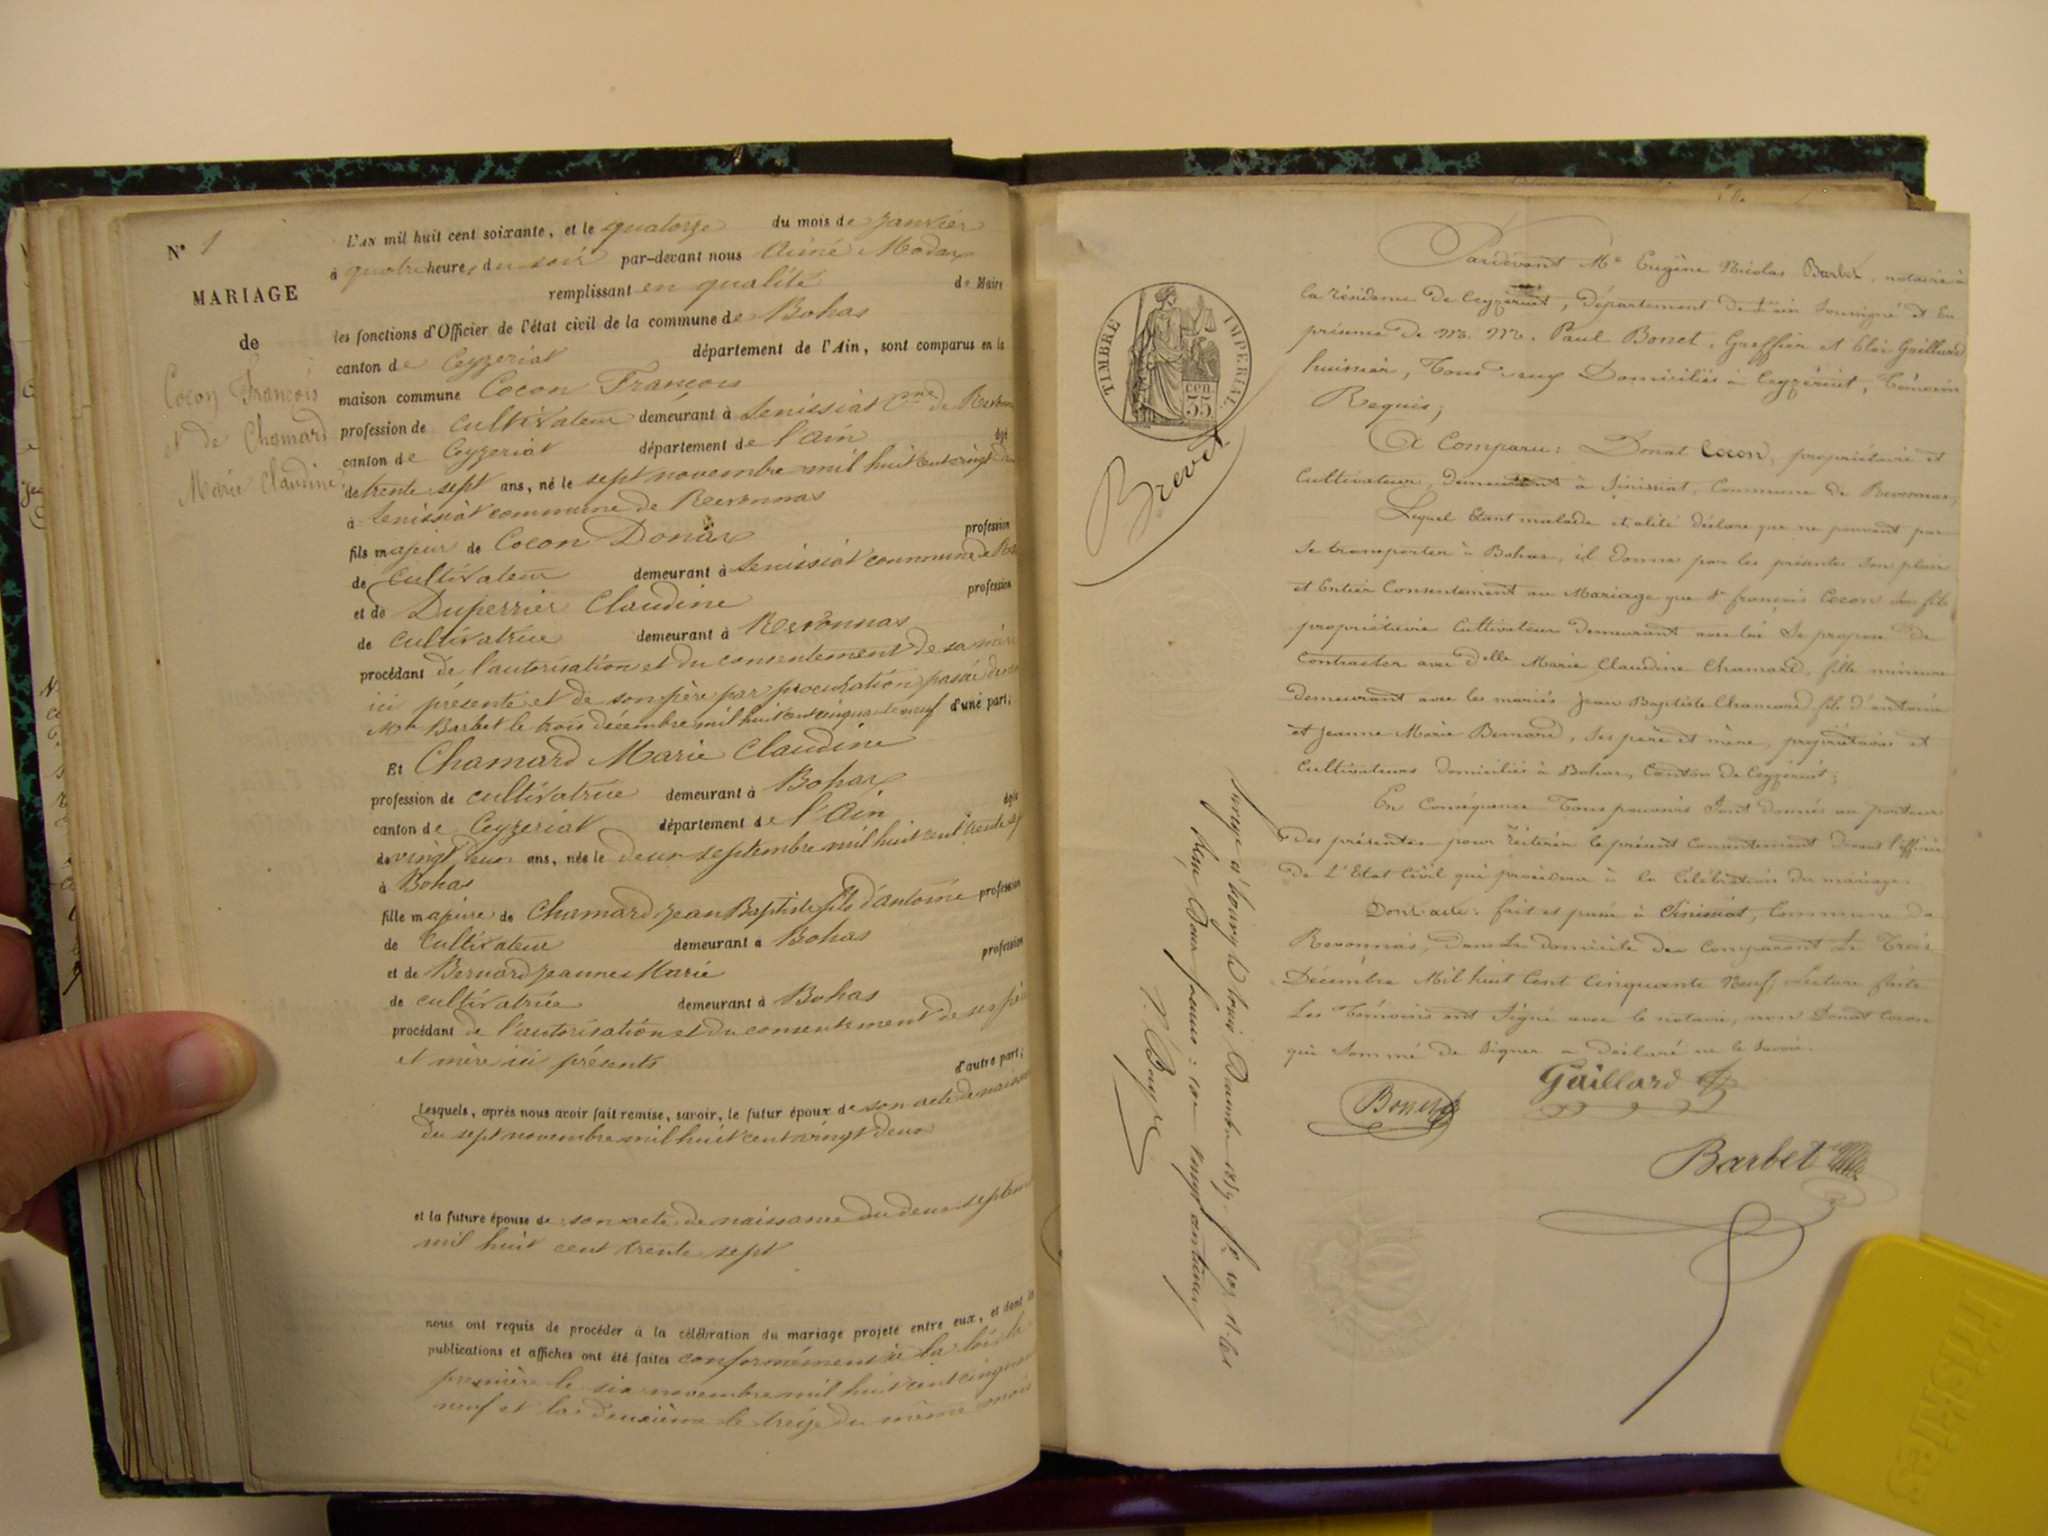 N° 1
MARIAGE
de
Cocon François
et de Chamard
Marie Claudine
L'AN mil huit cent soixante, et le quatorze du mois de Janvier
à quatre heures du soir par-devant nous Aimé Modas
remplissant en qualité de Maire
les fonctions d'Officier de l'état civil de la commune de Bohas
canton de Ceyzeriat département de l'Ain, sont comparus en la
maison commune Cocon François
profession de cultivateur demeurant à Senissiat Cne de Revonnas
canton de Ceyzeriat département de l'Ain âgé
de trente sept ans, né le sept novembre mil huit cent vingt deux
à Senissiat commune de Revonnas
fils majeur de Cocon Donat profession
de cultivateur demeurant à Senissiat commune de
et de Duperrier Claudine profession
de cultivatrice demeurant à Revonnas
procédant de l'autorisation et du consentement de sa mère
ici présente et de son père par procuration passée devant
Me Barbet le trois décembre mil huit cent cinquante neuf d'une part;
Et Chamard Marie Claudine
profession de cultivatrice demeurant à Bohas
canton de Ceyzeriat département de l'Ain âgée
de vingt deux ans, née le deux septembre mil huit cent trente sept
à Bohas
fille majeure de Chamard Jean Baptiste fils d'antoine profession
de cultivateur demeurant à Bohas
et de Bernard Jeanne Marie profession
de cultivatrice demeurant à Bohas
procédant de l'autorisation et du consentement de ses père
et mère ici présents
d'autre part;
Lesquels, après nous avoir fait remise, savoir, le futur époux de son acte de naissance
du sept novembre mil huit cent vingt deux
et la future épouse de son acte de naissance du deux septembre
mil huit cent trente sept
nous ont requis de procéder à la célébration du mariage projeté entre eux, et dont les
publications et affiches ont été faites conformément à la loi la
première le six novembre mil huit cent cinquante
neuf et la deuxième le treize du même mois
TIMBRE IMPERIAL
35 cen
Brevet
Pardevant Me Eugène Nicolas Barbet, notaire à
la résidence de Ceyzériat, département de l'ain soussigné et en
présence de M. M. Paul Bonet, Greffier et Eloi Gaillard
huissier, Tous deux Domiciliés à Ceyzériat, Témoins
Requis;
A Comparu: Donat Cocon, propriétaire et
Cultivateur, demeurant à Sénissiat, Commune de Revonnas,
Lequel Etant malade et alité déclare que ne pouvant pas
se transporter à Bohas, il donne par les présentes Son plein
et Entier Consentement au Mariage que Sr françois Cocon son fils
propriétaire Cultivateur demeurant avec lui Se propose de
Contracter avec Delle Marie Claudine Chamard, fille mineure
demeurant avec les mariés Jean Baptiste Chamard fils d'antoine
et Jeanne Marie Bernard, Ses père et mère, propriétaires et
Cultivateurs domiciliés à Bohas, Canton de Ceyzériat;
En Conséquence Tous pouvoirs Sont donnés au porteur
Des présentes pour réitérer le présent Consentement devant l'officier
De L'Etat Civil qui procédera à la Célébration du mariage.
Dont acte: fait et passé à Sénissiat, Commune de
Revonnas, Dans le domicile du Comparant le Trois
Décembre Mil huit Cent Cinquante Neuf, lecture faite
Les Témoins ont Signé avec le notaire, non Donat Cocon
qui Sommé de signer a déclaré ne le Savoir.
Gaillard
Bonet
Barbet
Décembre 1859
Reçu Deux francs